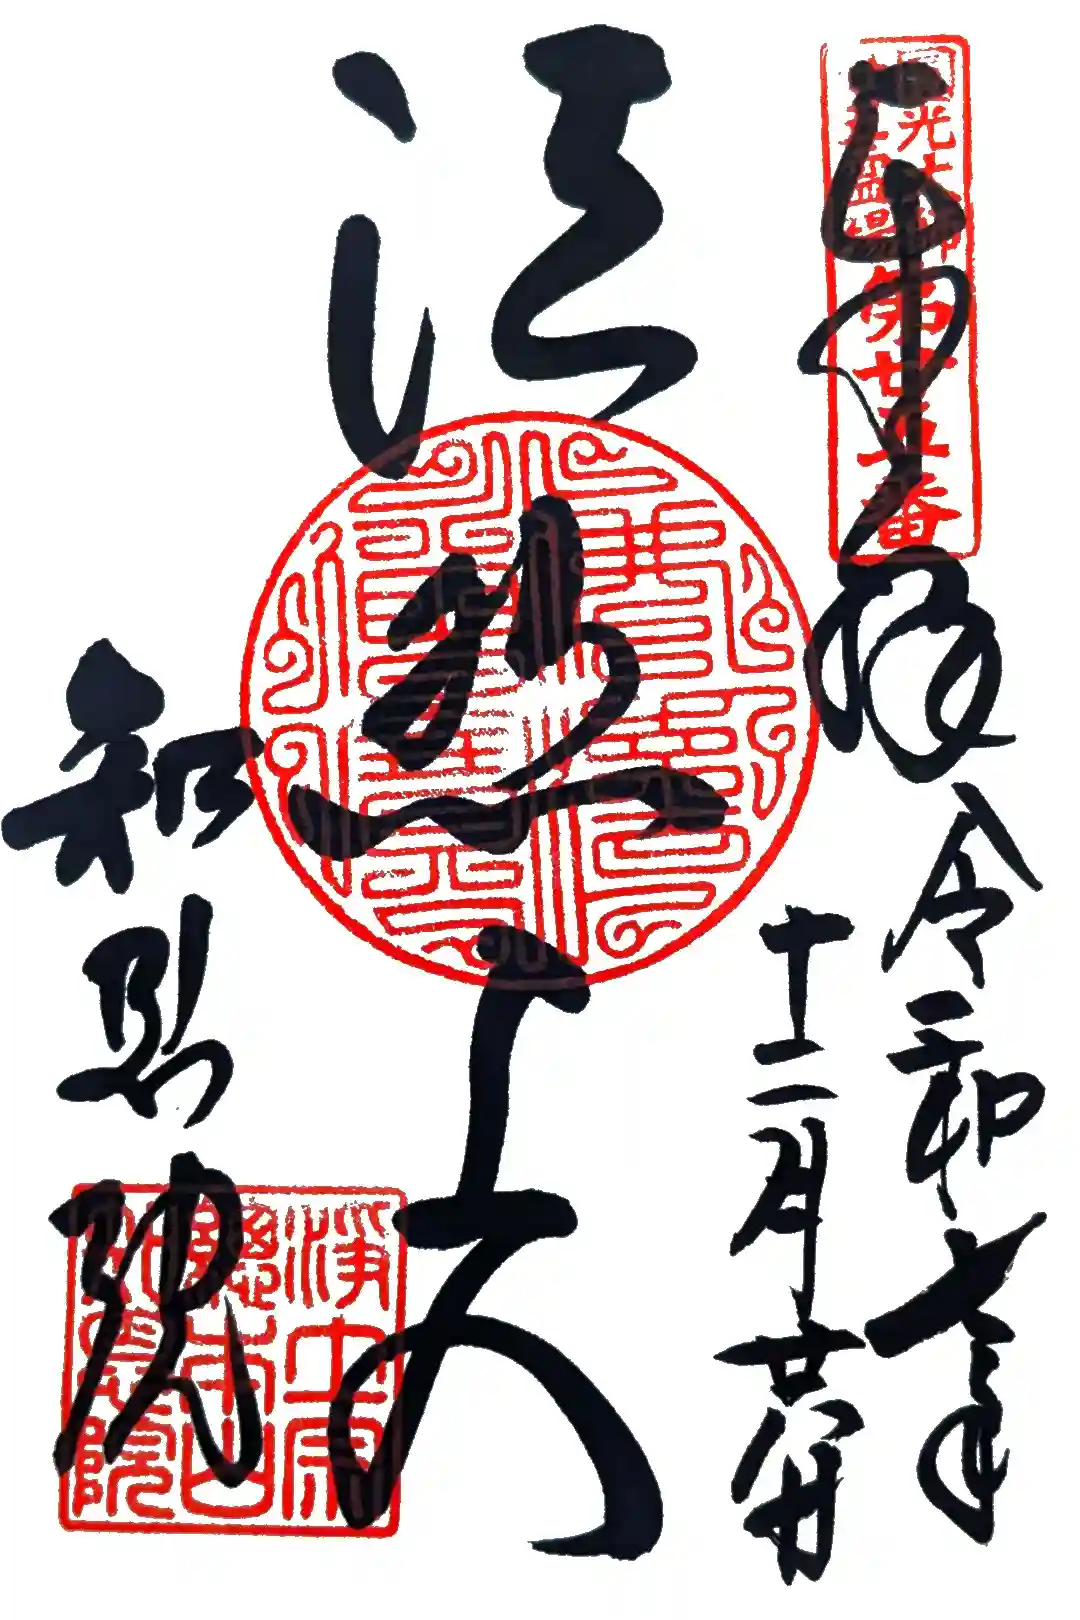 圓光大師
霊場
第廿五番
奉拝
令和七年
十二月廿八日
法然上人
知恩院
淨土宗
總本山
知恩院